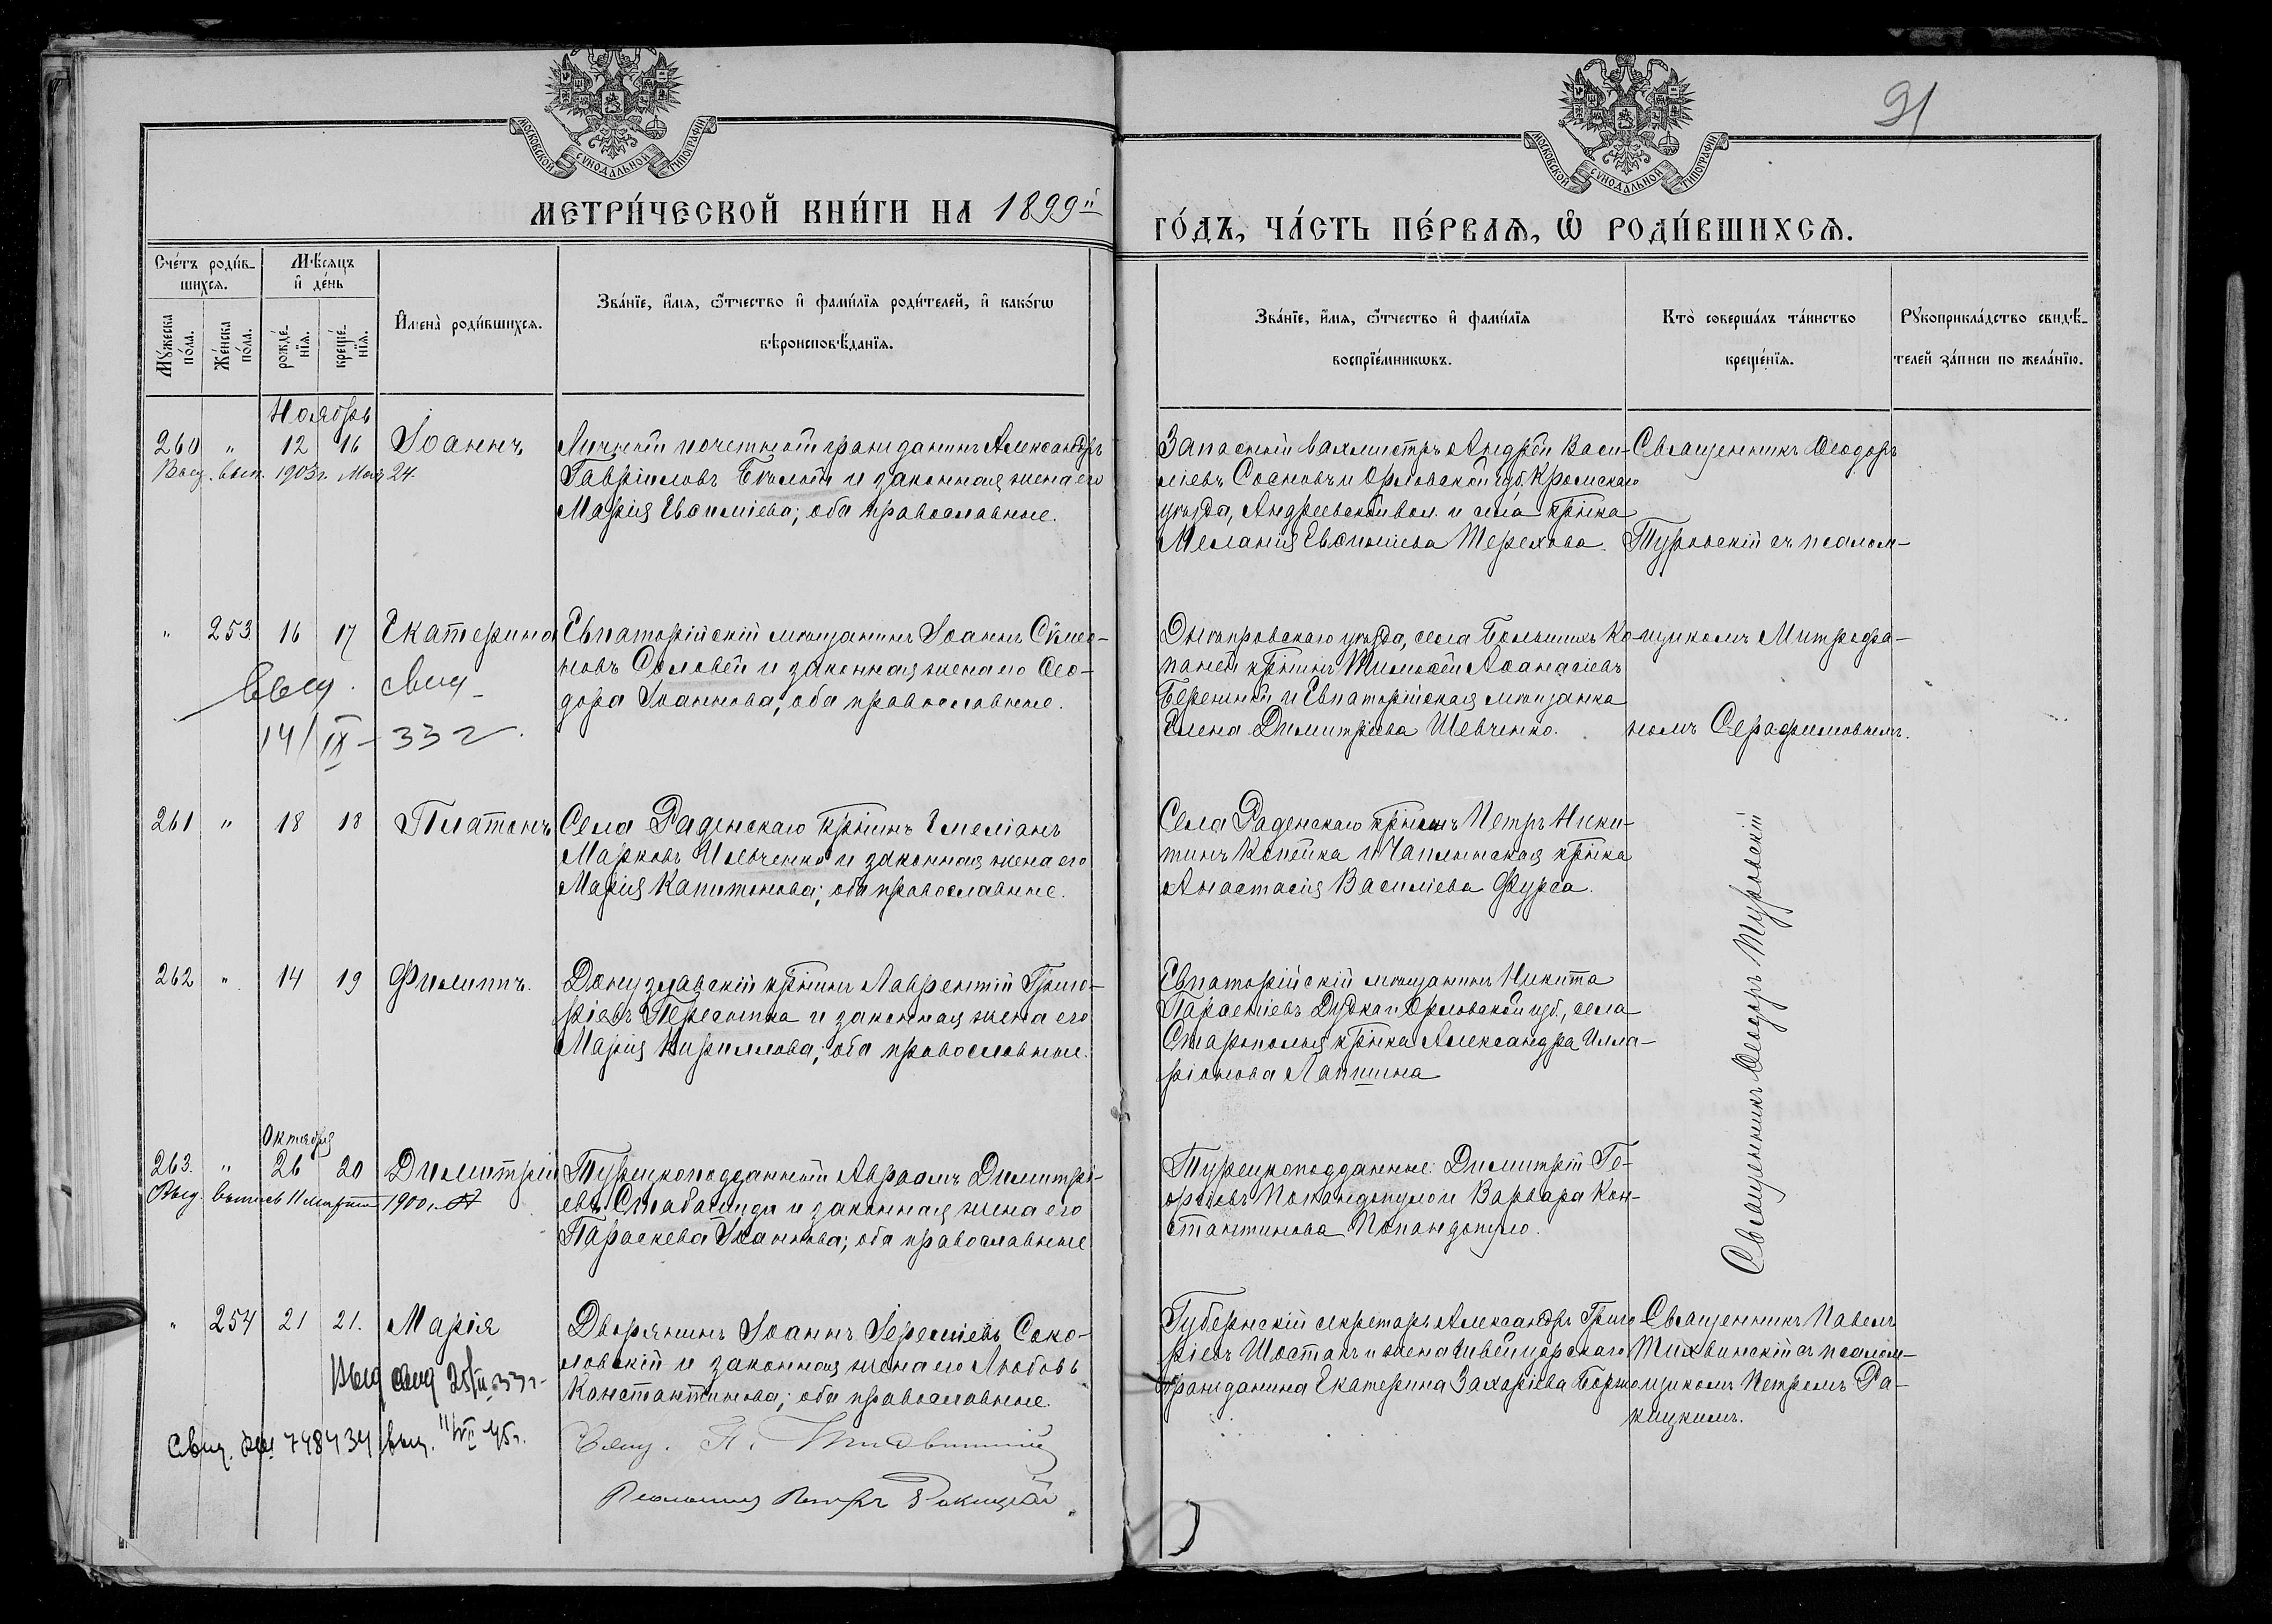 91
МОСКОВСКОЙ СѴНОДАЛЬНОЙ ТИПОГРАФІИ
МОСКОВСКОЙ СѴНОДАЛЬНОЙ ТИПОГРАФІИ
МЕТРИ́ЧЕСКОЙ КНИ́ГИ НА 1899й
ГО́ДЪ, ЧА́СТЬ ПЕ́РВАѦ, Ѡ҆ РОДИ́ВШИХСѦ.
Сче́тъ роди́в-
шихсѧ.
Мꙋ́жеска по́ла.
Же́нска по́ла.
Мѣ́сяцъ
и҆ де́нь
рожде́нїѧ.
креще́нїѧ.
И҆мена̀ роди́вшихсѧ.
Зва́нїе, и҆́мѧ, ѻ҆́тчество и҆ фами́лїѧ роди́телей, и҆ како́гѡ
вѣроисповѣ́данїѧ.
Зва́нїе, и҆́мѧ, ѻ҆́тчество и҆ фами́лїѧ
воспрїе́мникѡвъ.
Кто̀ соверша́лъ та́инство
креще́нїѧ.
Рꙋкоприкла́дство свидѣ́-
телей за́писи по жела́нїю.
Ноябрь
260 " 12 16 Іоаннъ
Выд. вып. 1903 г. Мая 24.
Личный почетный гражданинъ Александръ
Гавріиловъ Бѣлый и законная жена его
Марія Евѳиміева; оба православные.
Запасный вахмистръ Андрей Васи-
ліевъ Сосновъ и Орловской губ. Кромскаго
уѣзда, Андреевской вол. и села кр-нка
Меланія Евѳиміева Терехова.
Священникъ Ѳеодоръ
Туровскій съ псалом-
" 253 16 17 Екатерина
Выд. свид-
14/IX-33 г.
Евпаторійскій мѣщанинъ Іоаннъ Сѵмео-
новъ Соловей и законная жена его Ѳео-
дора Іоаннова; оба православные.
Днѣпровскаго уѣзда, села Большихъ Ко-
паней кр-нинъ Тимоѳей Аѳанасіевъ
и Евпаторійская мѣщанка
Елена Димитріева Шевченко.
щикомъ Митрофа-
номъ Серафимовымъ.
261 " 18 18 Платонъ
Села Раденскаго кр-нинъ Емеліанъ
Марковъ Шевченко и законная жена его
Марія Капитонова; оба православные.
Села Раденскаго кр-нинъ Петръ Ники-
тинъ Копейка и Чаплынская кр-нка
Анастасія Василіева Фурса.
262 " 14 19 Филиппъ.
Донузлавскій кр-нинъ Лаврентій Григо-
ріевъ и законная жена его
Марія Кириллова; оба православные.
Евпаторійскій мѣщанинъ Никита
Парѳеніевъ Дудка и Орловской губ., села
Старополья кр-нка Александра Илла-
ріонова Лапшина
Священникъ Ѳеодоръ Туровскій
Октября
263. " 26 20 Димитрій
Выд. выпись 11 марта 1900 г.
Турецкоподданный Авраамъ Димитрі-
евъ и законная жена его
Параскева Іоаннова; оба православные
Турецкоподданные: Димитрій Ге-
оргіевъ Попандопуло и Варвара Кон-
стантинова Попандопуло.
" 254 21 21. Марія
Выд свид 25/ 33 г
Свид. 748434 выд. 11/VI 45 г.
Дворянинъ Іоаннъ Іереміевъ Соко-
ловскій и законная жена его Любовь
Константинова; оба православные.
Губернскій секретарь Александръ Григо-
ріевъ Шостакъ и жена швейцарскаго
гражданина Екатерина Захаріева
Священникъ Павелъ
Тихвинскій съ псалом-
щикомъ Петромъ Ра-
кицкимъ.
Свящ. П. Тихвинскій
Псаломщ Петръ Ракицкій